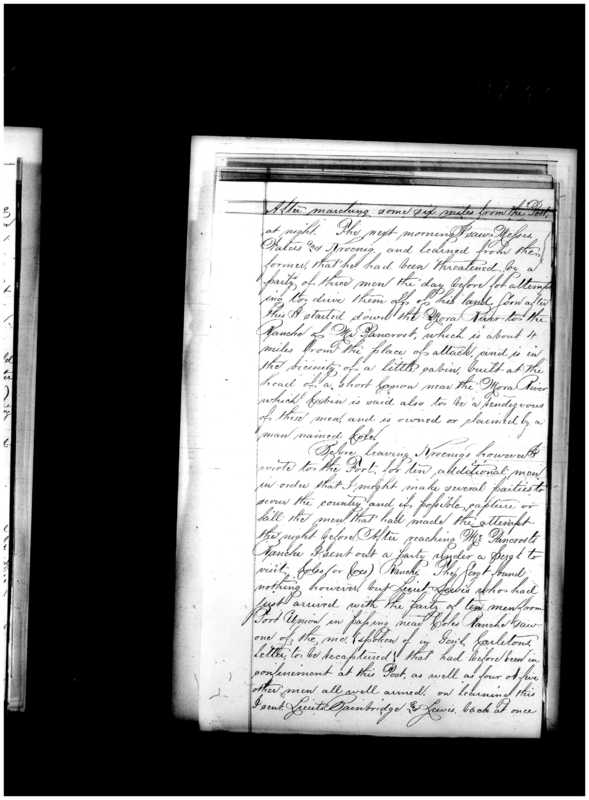 After marching some six miles from the Post,
at night. The next morning I saw Messrs
Waters & Kroenig, and learned from the
former, that he had been threatened by a
party of three men the day before for attempt
ing to drive them off of his land, Soon after
this I started down the Mora River to the
Ranche of Mr Pancrost, which is about 4
miles from the place of attack, and is in
the vicinity of a little cabin, built at the
head of a short Cañon near the Mora River
which Cabin is said also to be a rendezvous
of these men, and is owned or claimed by a
man named Cole.
Before leaving Kroenigs however I
wrote to the Post, for ten additional men
in order that I might make several parties to
scour the country and if possible capture or
kill the men that had made the attempt
the night before. After reaching Mr Pancrosts
Ranche I sent out a party under a Sergt to
visit Coles (or Coxs) Ranche They Sergt found
nothing however but Lieut Lewis who had
just arrived with the party of ten men from
Fort Union in passing near Coles Ranche saw
one of the men (spoken of in Genl Carletons
Letter, to be recaptured) that had before been in
confinement at this Post, as well as four or five
other men all well armed. on learning this
I sent Lieuts Bainbridge & Lewis back at once